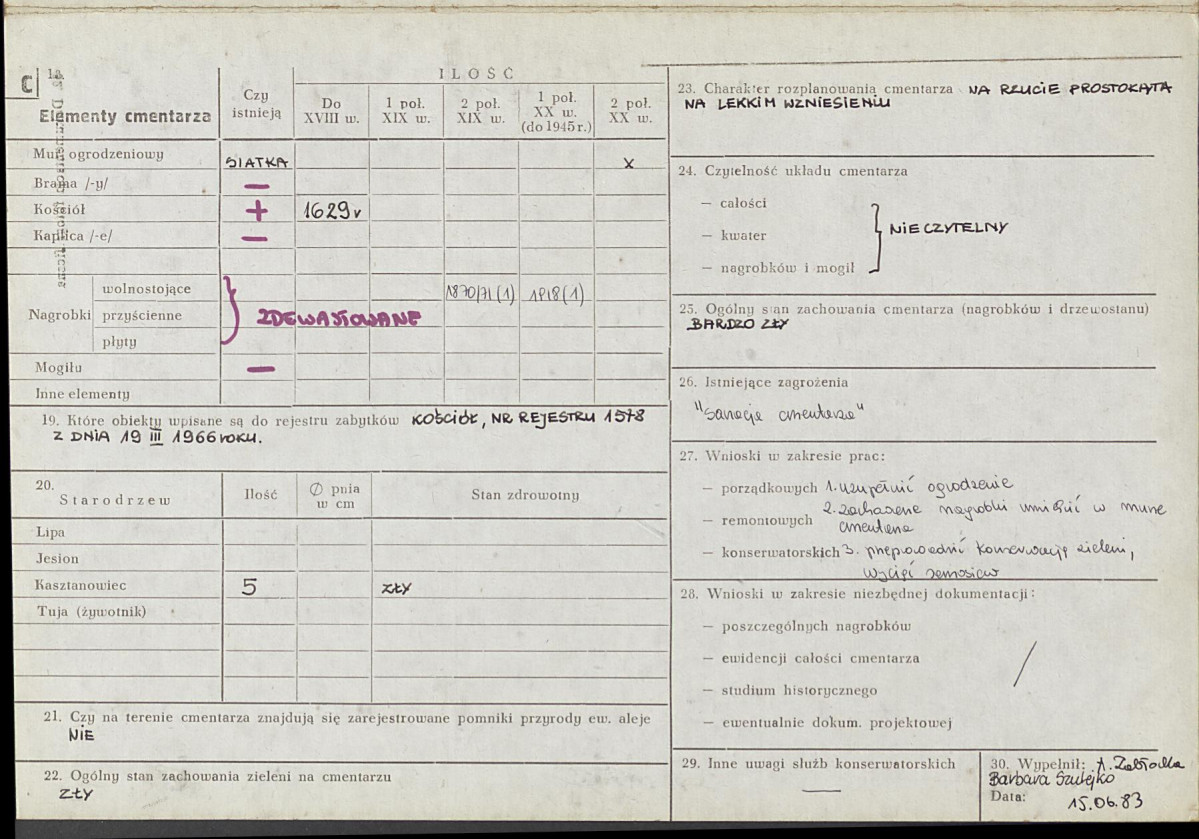 C
Elementy cmentarza
Czy istnieją
ILOŚĆ
Do XVIII w.
1 poł. XIX w.
2 poł. XIX w.
1 poł. XX w. (do 1945 r.)
2 poł. XX w.
Mur ogrodzeniowy SIATKA X
Brama /-y/ —
Kościół + 1629 r
Kaplica /-e/ —
Nagrobki
wolnostojące 1870/71 (1) 1918 (1)
przyścienne ZDEWASTOWANE
płyty
Mogiły —
Inne elementy
19. Które obiekty wpisane są do rejestru zabytków KOŚCIÓŁ, NR REJESTRU 1578
Z DNIA 19 III 1966 ROKU.
20. Starodrzew
Ilość
∅ pnia w cm
Stan zdrowotny
Lipa
Jesion
Kasztanowiec 5 ZŁY
Tuja (żywotnik)
21. Czy na terenie cmentarza znajdują się zarejestrowane pomniki przyrody ew. aleje
NIE
22. Ogólny stan zachowania zieleni na cmentarzu
ZŁY
23. Charakter rozplanowania cmentarza NA RZUCIE PROSTOKĄTA
NA LEKKIM WZNIESIENIU
24. Czytelność układu cmentarza
— całości
— kwater NIECZYTELNY
— nagrobków i mogił
25. Ogólny stan zachowania cmentarza (nagrobków i drzewostanu)
BARDZO ZŁY
26. Istniejące zagrożenia
"Sanacja cmentarza"
27. Wnioski w zakresie prac:
— porządkowych 1. uzupełnić ogrodzenie
— remontowych 2. zachowane nagrobki umieścić w murze
cmentarza
— konserwatorskich 3. przeprowadzić konserwację zieleni,
wyciąć samosiew
28. Wnioski w zakresie niezbędnej dokumentacji:
— poszczególnych nagrobków
— ewidencji całości cmentarza
— studium historycznego
— ewentualnie dokum. projektowej
29. Inne uwagi służb konserwatorskich
—
30. Wypełnił: A.
Barbara Szulejko
Data: 15.06.83